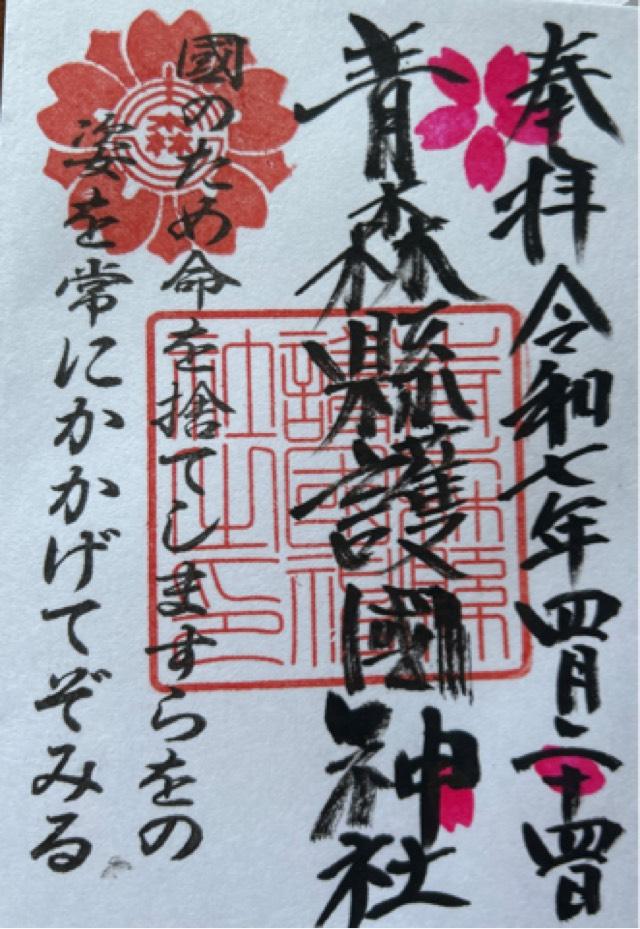 奉拝 令和七年四月二十四日
青森縣護國神社
國のため命を捨てしますらをの
姿を常にかかげてぞみる
森
青森縣護國神社之印